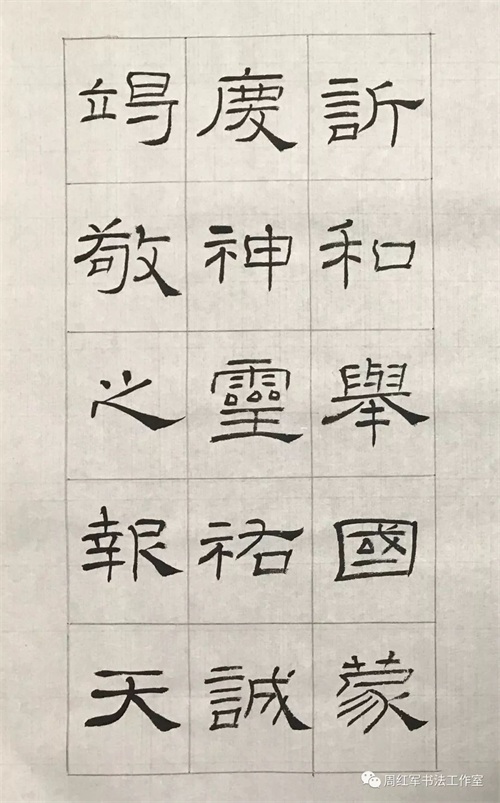 訢和舉國蒙
慶神靈祐誠
竭敬之報天
周红军书法工作室